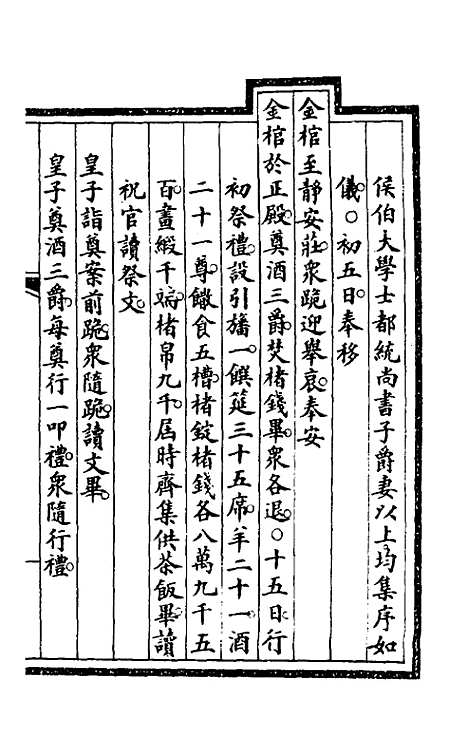 侯伯大學士都統尚書子爵妻以上均集序如
儀○初五日奉移
金棺至靜安莊衆跪迎舉哀奉安
金棺於正殿奠酒三爵焚楮錢畢衆各退○十五日行
初祭禮設引旛一饌筵三十五席羊二十一酒
二十一尊饊食五槽楮錠楮錢各八萬九千五
百畫緞千端楮帛九千屆時齊集供茶飯畢讀
祝官讀祭文
皇子詣奠案前跪衆隨跪讀文畢
皇子奠酒三爵每奠行一叩禮衆隨行禮